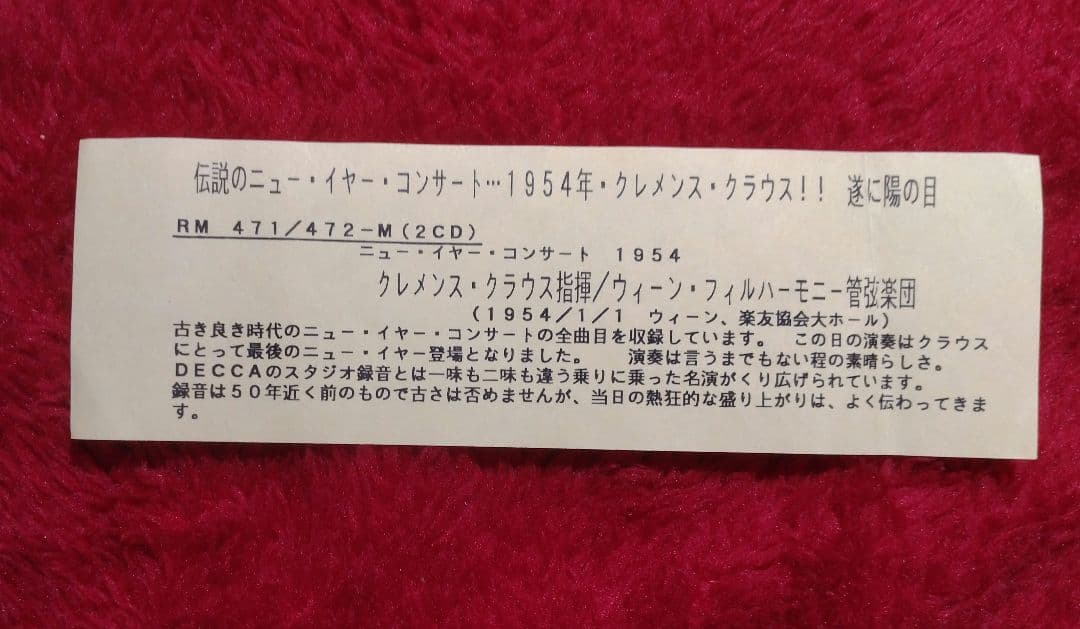 伝説のニュー・イヤー・コンサート…１９５４年・クレメンス・クラウス！！　遂に陽の目
ＲＭ　４７１／４７２－Ｍ（２ＣＤ）
ニュー・イヤー・コンサート　１９５４
クレメンス・クラウス指揮／ウィーン・フィルハーモニー管弦楽団
（１９５４／１／１　ウィーン、楽友協会大ホール）
古き良き時代のニュー・イヤー・コンサートの全曲目を収録しています。　この日の演奏はクラウス
にとって最後のニュー・イヤー登場となりました。　　演奏は言うまでもない程の素晴らしさ。
ＤＥＣＣＡのスタジオ録音とは一味も二味も違う乗りに乗った名演がくり広げられています。
録音は５０年近く前のもので古さは否めませんが、当日の熱狂的な盛り上がりは、よく伝わってきま
す。